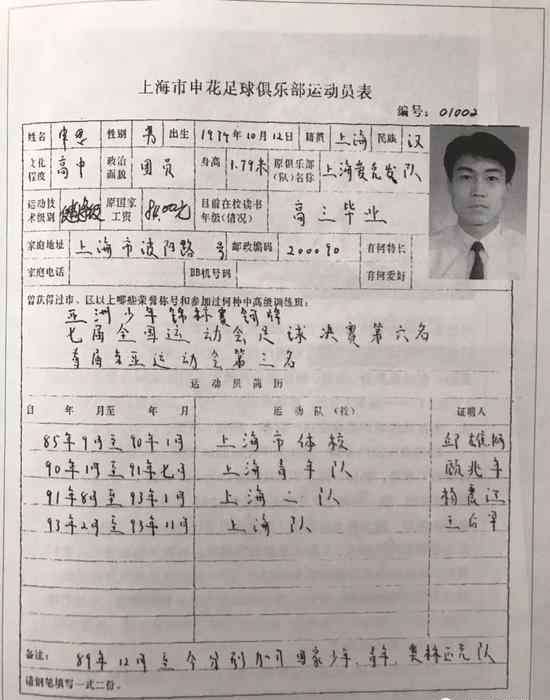 上海市申花足球俱乐部运动员表
编号: 01002
姓名 申思 性别 男 出生 1974年10月12日 籍贯 上海 民族 汉
文化程度 高中 政治面貌 团员 身高 1.79米 原俱乐部(队)名称 上海 队
运动技术级别 原国家工资 元 目前在校读书年级(情况) 高三毕业
家庭地址 上海市 路 号 邮政编码 200090 有何特长
家庭电话 BB机号码 有何爱好
曾获得过市、区以上哪些荣誉称号和参加过何种中高级训练班:
亚洲少年锦标赛铜牌
七届全国运动会足球决赛第六名
首届东亚运动会第三名
运动员简历
自 年 月至 年 月 运动队(校) 证明人
85年9月至90年1月 上海市体校
90年1月至91年七月 上海青年队
91年8月至93年1月 上海二队
93年2月至93年11月 上海队
备注: 89年12月至今分别加入国家少年、青年、奥林匹克队
请钢笔填写一式二份。